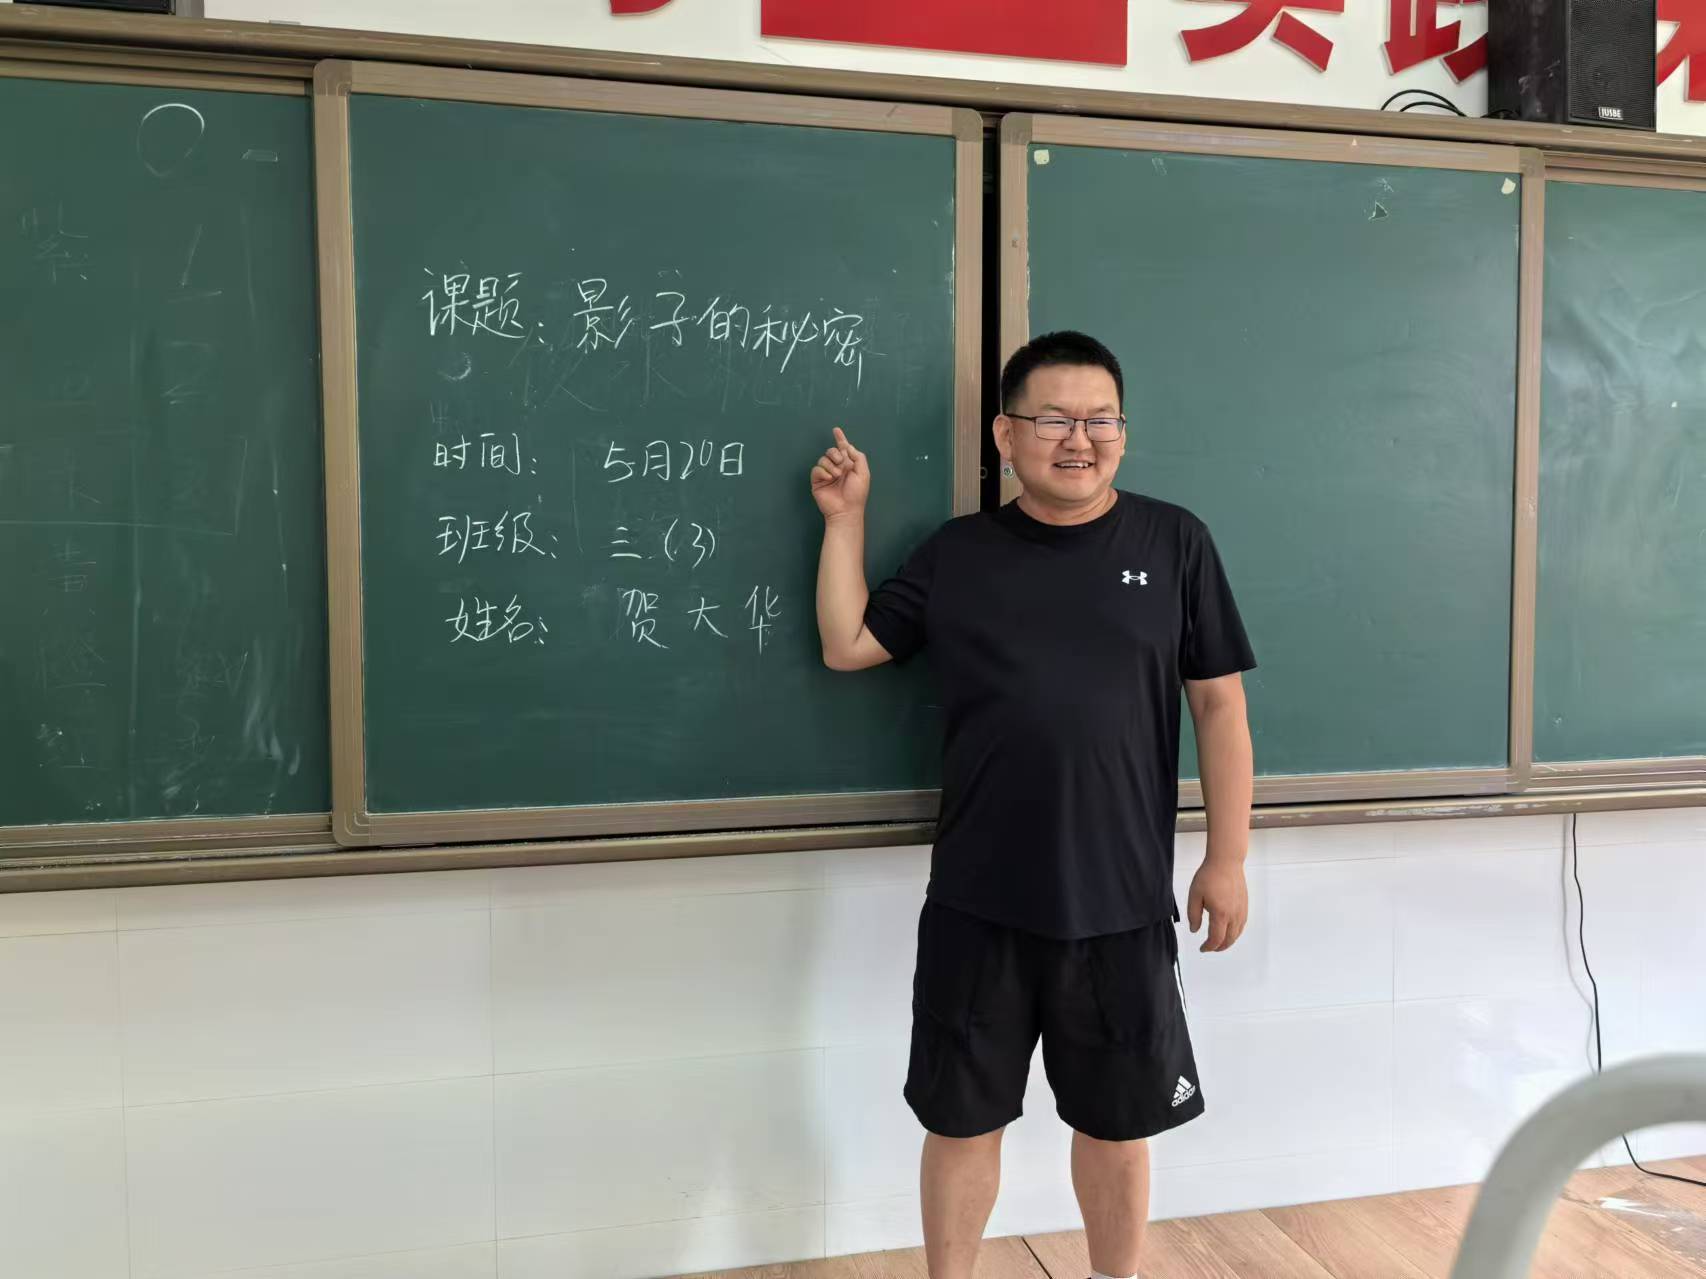 课题：影子的秘密
时间： 5月20日
班级： 三（3）
姓名： 贺大华
JUSBE
adidas